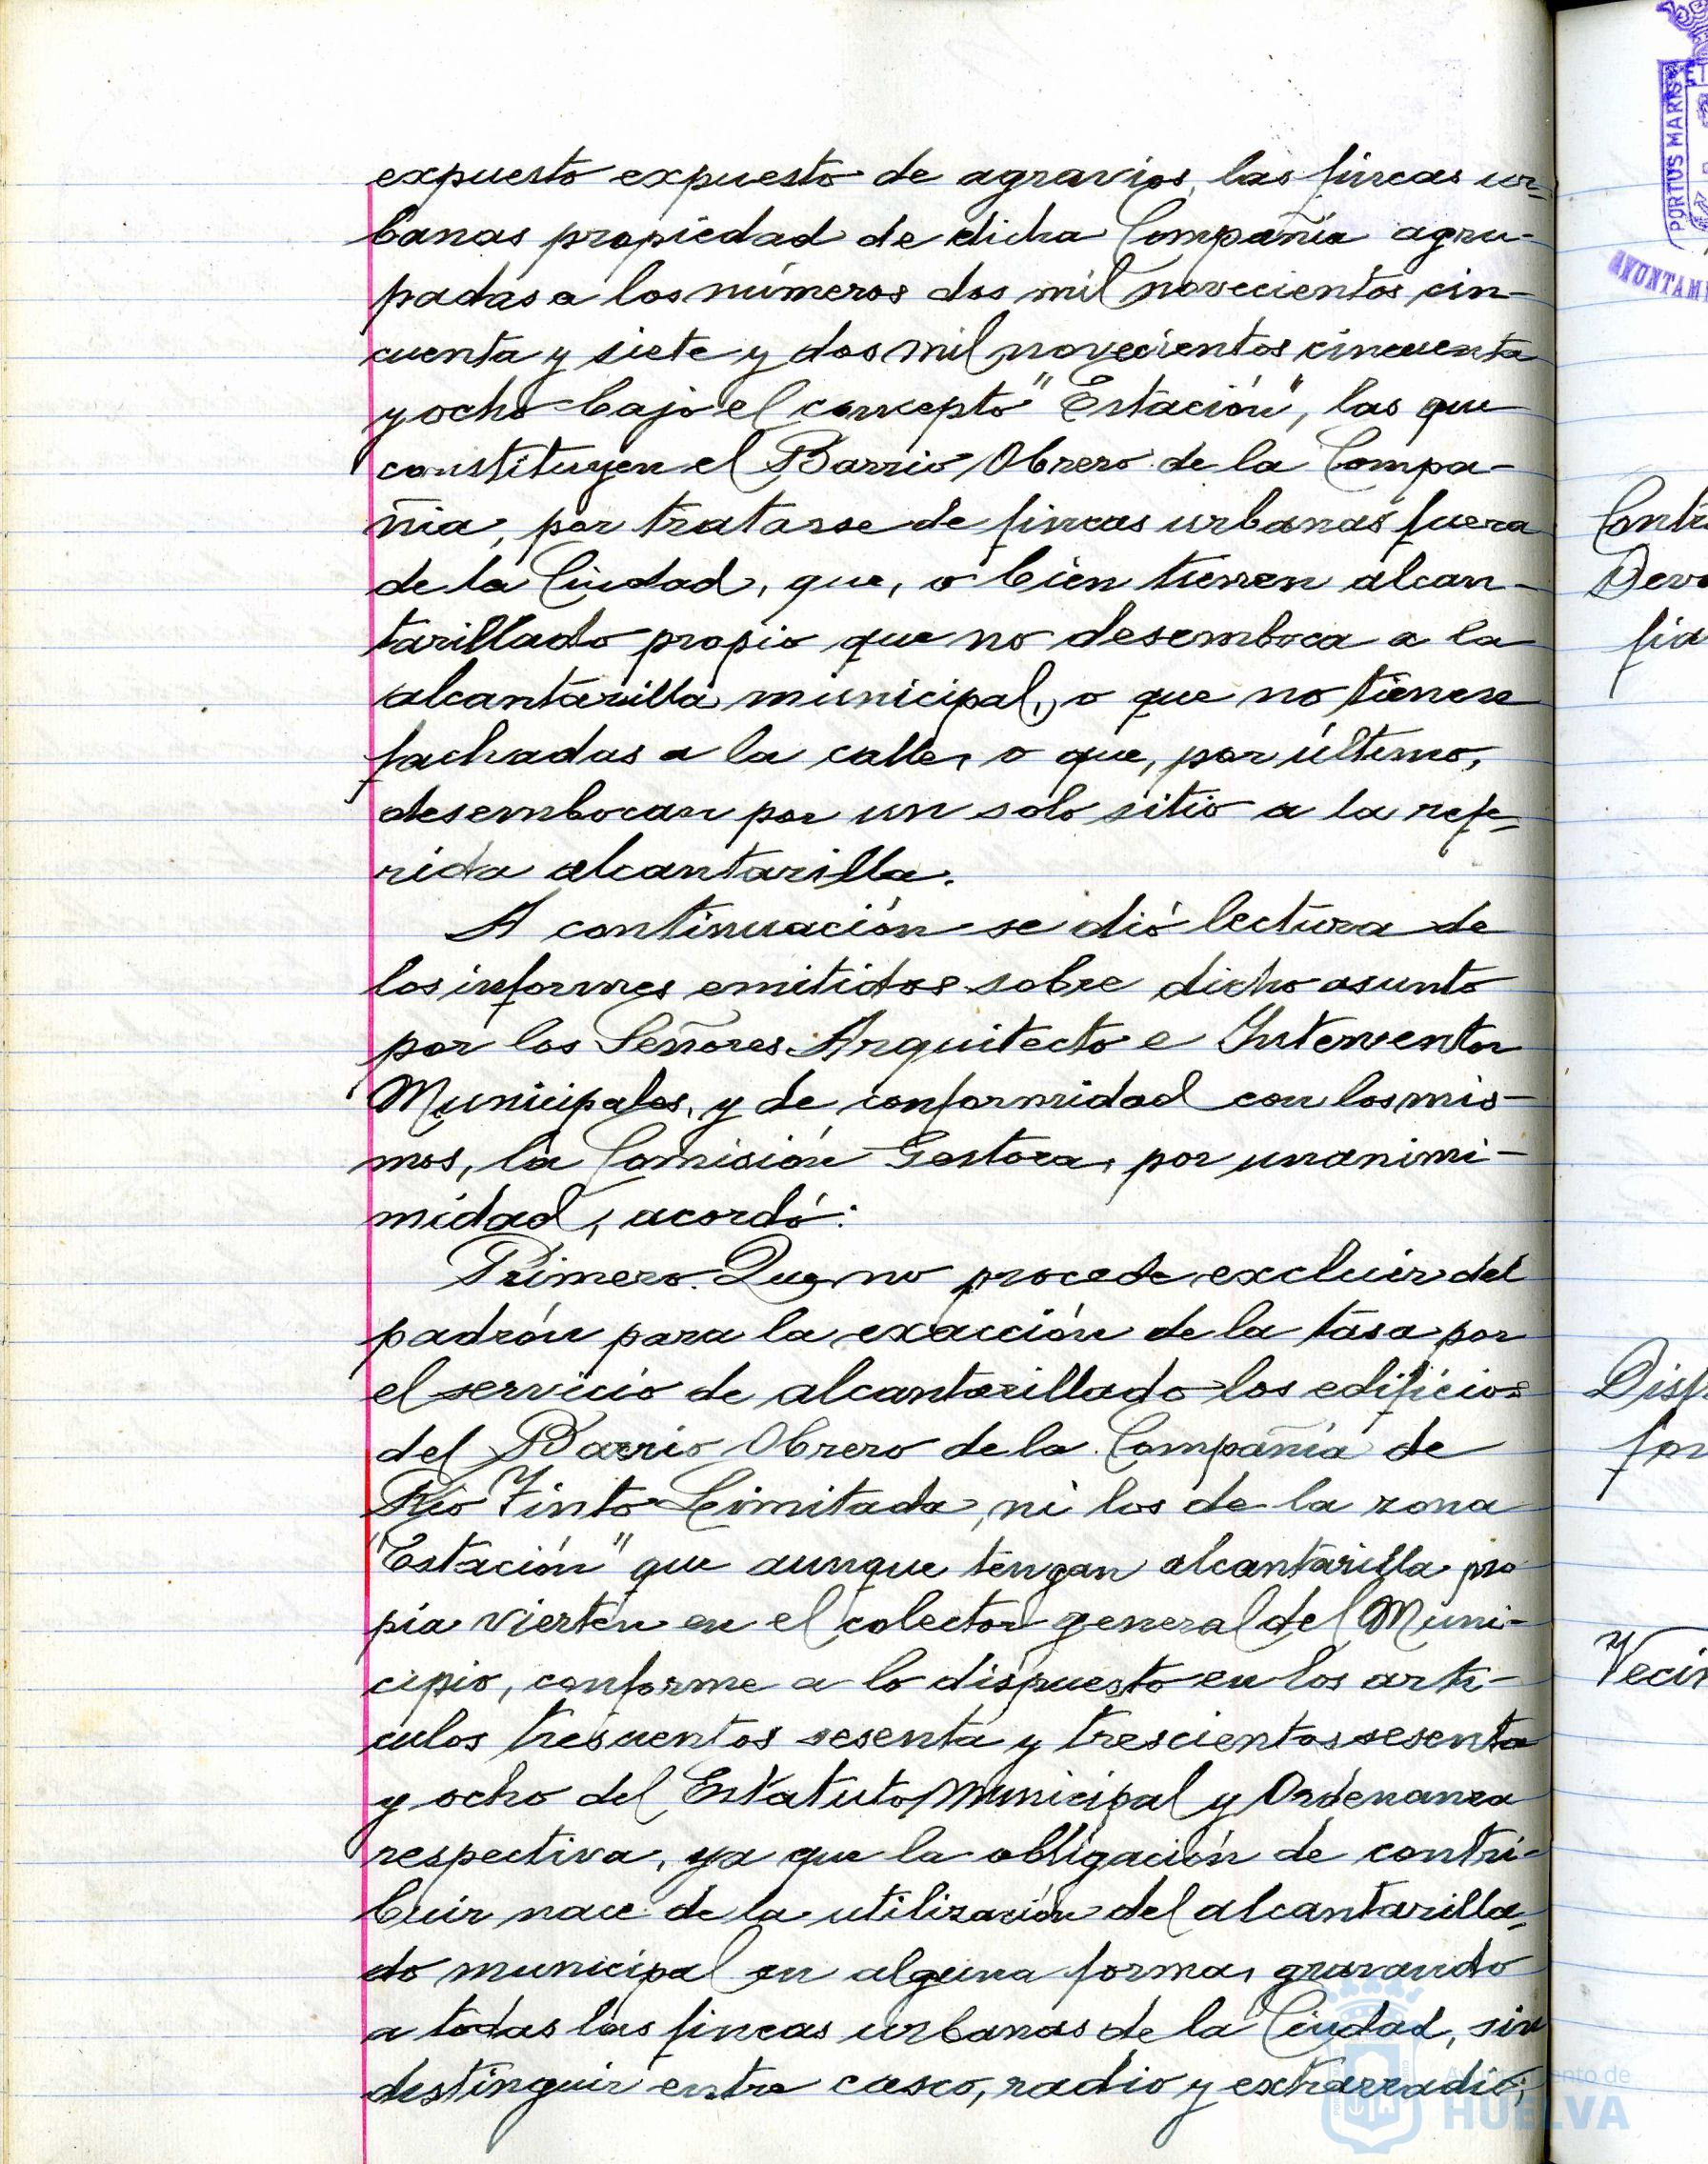 expuesto expuesto de agravios, las fincas ur-
banas propiedad de dicha Compañía agru-
padas a los números dos mil novecientos cin-
cuenta y siete y dos mil novecientos cincuenta
y ocho bajo el concepto "Estación", las que
constituyen el Barrio Obrero de la Compa-
ñia, por tratarse de fincas urbanas fuera
de la Ciudad, que, o bien tienen alcan-
tarillado propio que no desemboca a la
alcantarilla municipal, o que no tienen
fachadas a la calle, o que, por último,
desembocan por un solo sitio a la refe-
rida alcantarilla.
A continuación se dió lectura de
los informes emitidos sobre dicho asunto
por los Señores Arquitecto e Interventor
Municipales, y de conformidad con los mis-
mos, la Comisión Gestora, por unanimi-
midad, acordó:
Primero. Que no procede excluir del
padrón para la exacción de la tasa por
el servicio de alcantarillado los edificios
del Barrio Obrero de la Compañía de
Rio Tinto Limitada, ni los de la zona
"Estación" que aunque tengan alcantarilla pro
pia vierten en el colector general del Muni-
cipio, conforme a lo dispuesto en los artí-
culos trescientos sesenta y trescientos sesenta
y ocho del Estatuto Municipal y Ordenanza
respectiva, ya que la obligación de contri-
buir nace de la utilización del alcantarilla-
do municipal en alguna forma, gravando
a todas las fincas urbanas de la Ciudad, sin
distinguir entre casco, radio y extrarradio;
PORTUS MARIS
AYUNTAMI
Contri
Devo
fia
Disp
for
Vecin
Ayuntamiento de
HUELVA